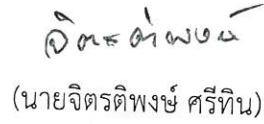 จิตรติพงษ์
(นายจิตรติพงษ์ ศรีทิน)